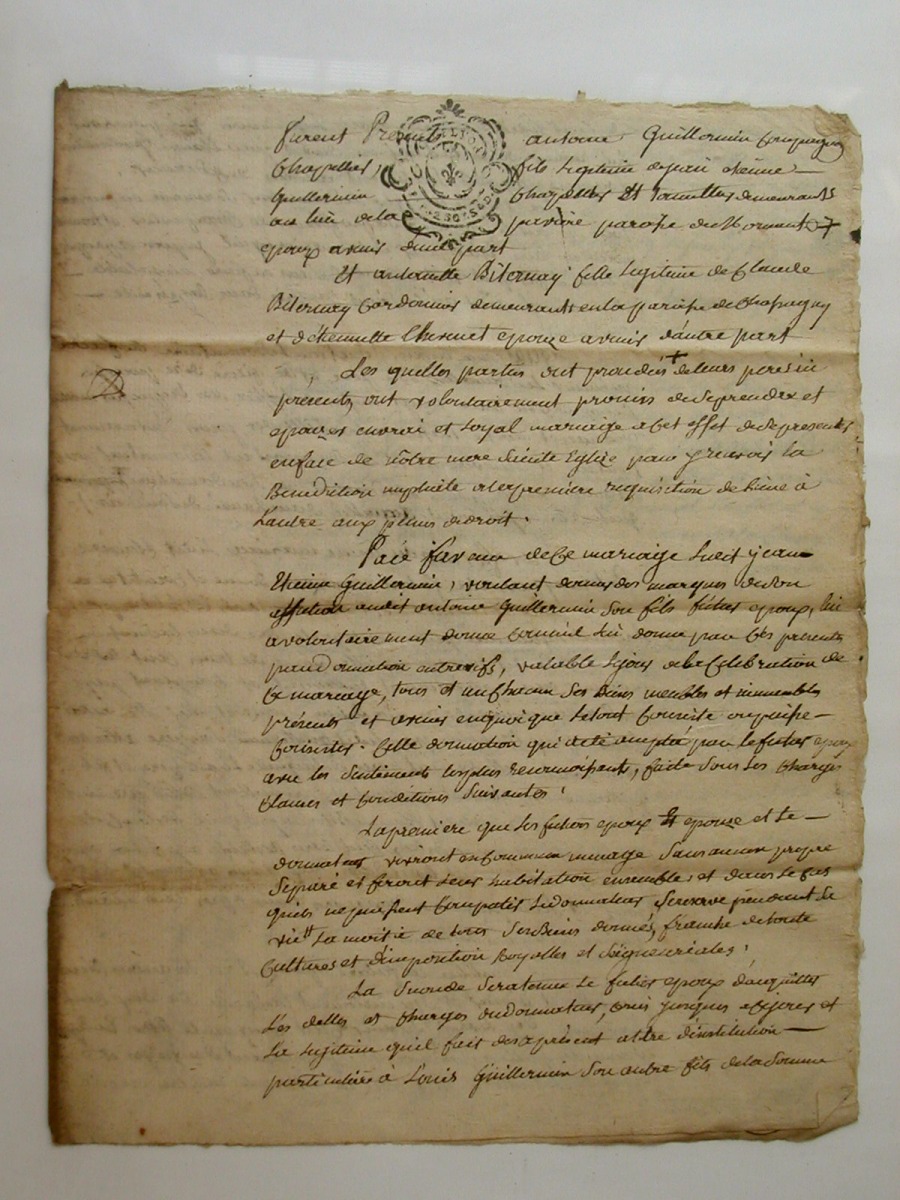 furent Presents antoine Guillermin Compagnon
Chapellier, fils legitime de jean etienne
Guillermin Chapellier Et demeurants
au lieu de la paroisse de Mornant
epoux avenir d'une part
Et antoinette Biternay fille legitime de Claude
Biternay Cordonnier demeurants en la paroisse de Chassagny
et d'étiennette Thevenet epouze avenir d'autre part
Les quelles parties ont procedés de leurs peres icy
présents, ont volontairement promis de se prendre et
epouzer en vrai et loyal mariage a Cet effet de se presenter
en face de nôtre mere Sainte Eglize pour y recevoir la
Benediction nuptiale a la premiere requisition de L'une à
L'autre aux peines de droit.
Par faveur de Ce mariage Ledit jean
Etienne Guillermin, voulant donner des marques de Son
affection audit antoine Guillermin Son fils futur epoux, lui
a volontairement donné Comme il lui donne par Ces présentes
par donnation entrevifs, valable le jour de la Celebration de
Ce mariage, tous et un Chacun Ses Biens meubles et immeubles
présents et avenir en quoi que le tout Consiste ou puisse
Consister. Cette donnation qui a été acceptée par le futur epoux
avec les Sentiments les plus reconnoissants, faite Sous les Charges
Clauses et Conditions Suivantes.
La premiere que les futurs epoux Et epouze et le
donnateur vivront en Commun menage Sans aucun propre
Separé et feront Leur habitation ensemble, et dans le Cas
qu'ils ne puissent Compatir le donnateur Se reserve pendant Sa
vie La moitié de tous Ses Biens donnés, franche de toute
Cultures et d'imposition Royalles et Seigneuriales.
La Seconde Sera tenu le futur epoux d'acquitter
Les dettes et Charges du donnateur, Crées jusques a ce jour et
La legitime qu'il fait des apresent a titre d'institution
particulière à Louis Guillermin Son autre fils de la Somme